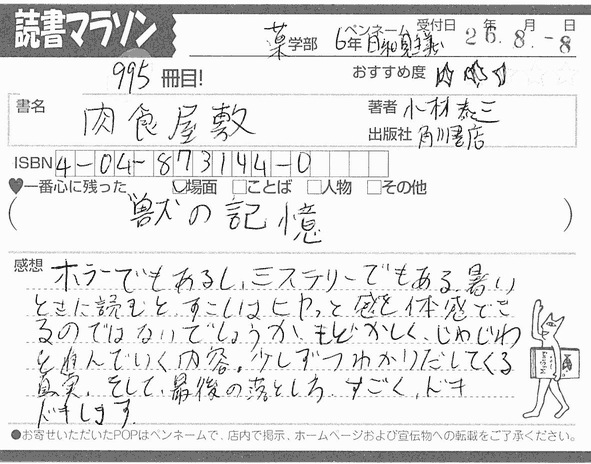 読書マラソン
薬学部 6年 ペンネーム 日和見主義 受付日 26年8月-8日
995冊目! おすすめ度 ☆☆☆
書名 肉食屋敷 著者 小林泰三
出版社 角川書店
ISBN 4-04-873144-0
♥一番心に残った □場面 □ことば □人物 □その他
(獣の記憶)
感想 ホラーでもあるし、ミステリーでもある。暑い
ときに読むと、すこしはヒヤッと感を体感でき
るのではないでしょうか。もどかしく、じわじわ
と進んでいく内容。少しずつわかりだしてくる
真実。そして、最後の落としろ。すごく、ドキ
ドキします。
●お寄せいただいたPOPはペンネームで、店内で掲示、ホームページおよび宣伝物への転載をご了承ください。